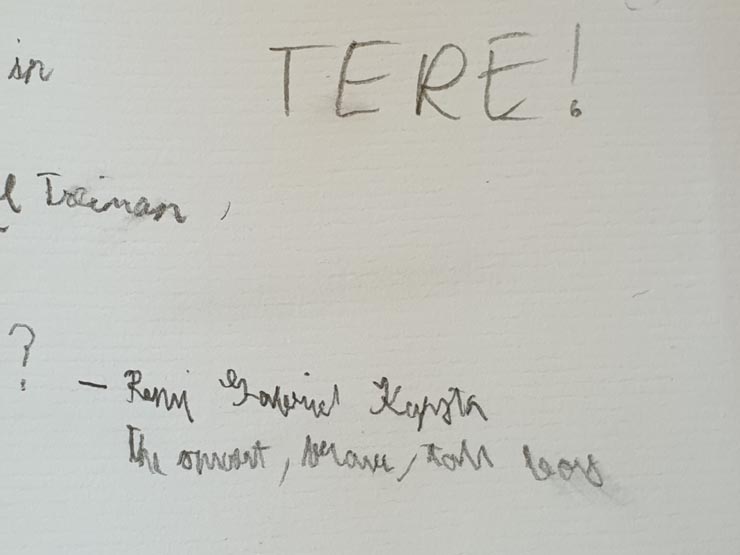 in TERE!
Traiman,
? – Remi Gabriel Kapsta
The smart, brave, tall boy